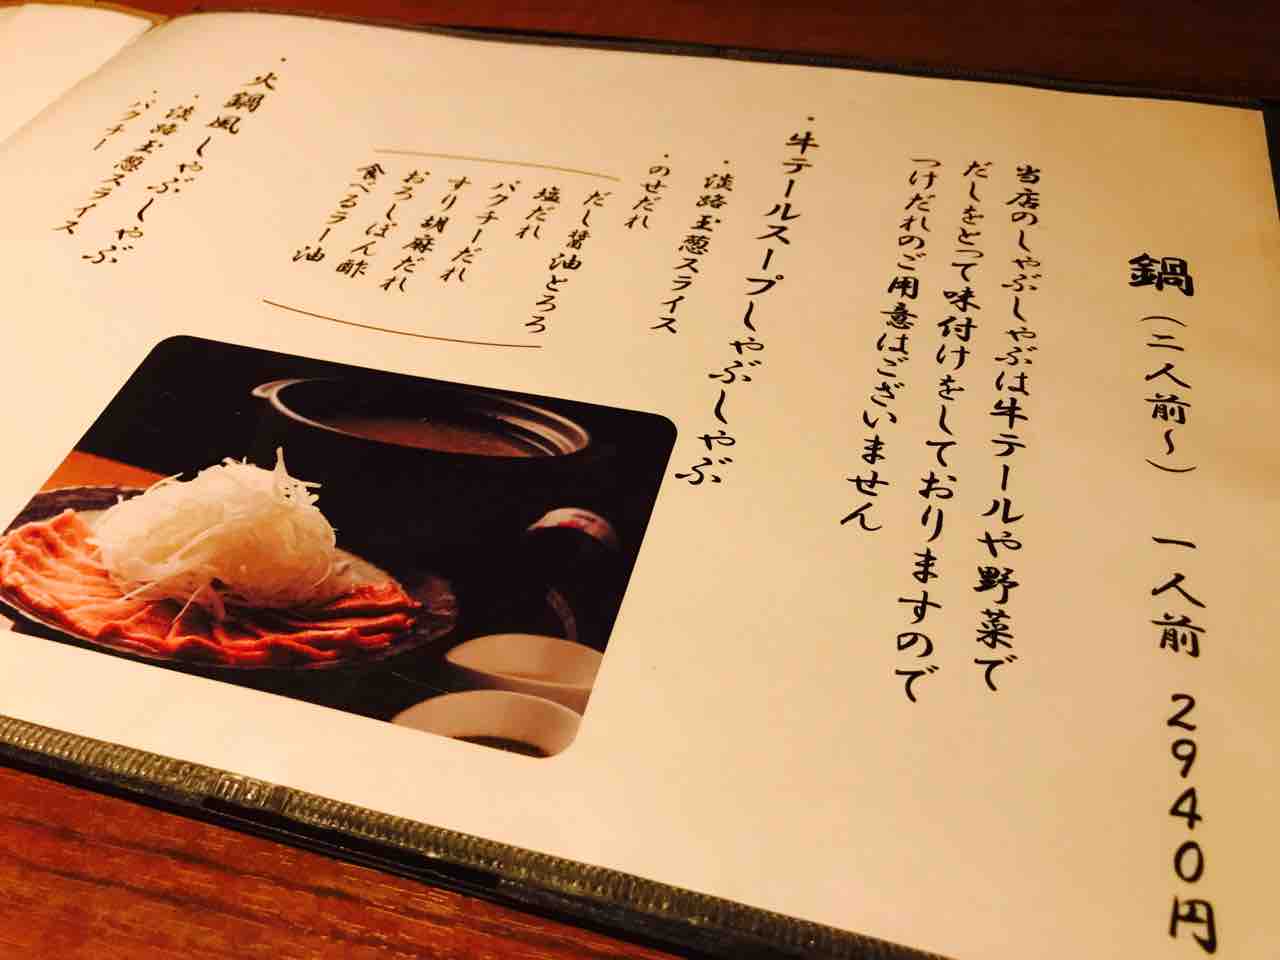 鍋（二人前〜）　一人前　2940円
当店のしゃぶしゃぶは牛テールや野菜で
だしをとって味付けをしておりますので
つけだれのご用意はございません
・牛テールスープしゃぶしゃぶ
・淡路玉葱スライス
・のせだれ
だし醤油とろろ
塩だれ
パクチーだれ
すり胡麻だれ
おろしぽん酢
食べるラー油
・火鍋風しゃぶしゃぶ
・淡路玉葱スライス
・パクチー